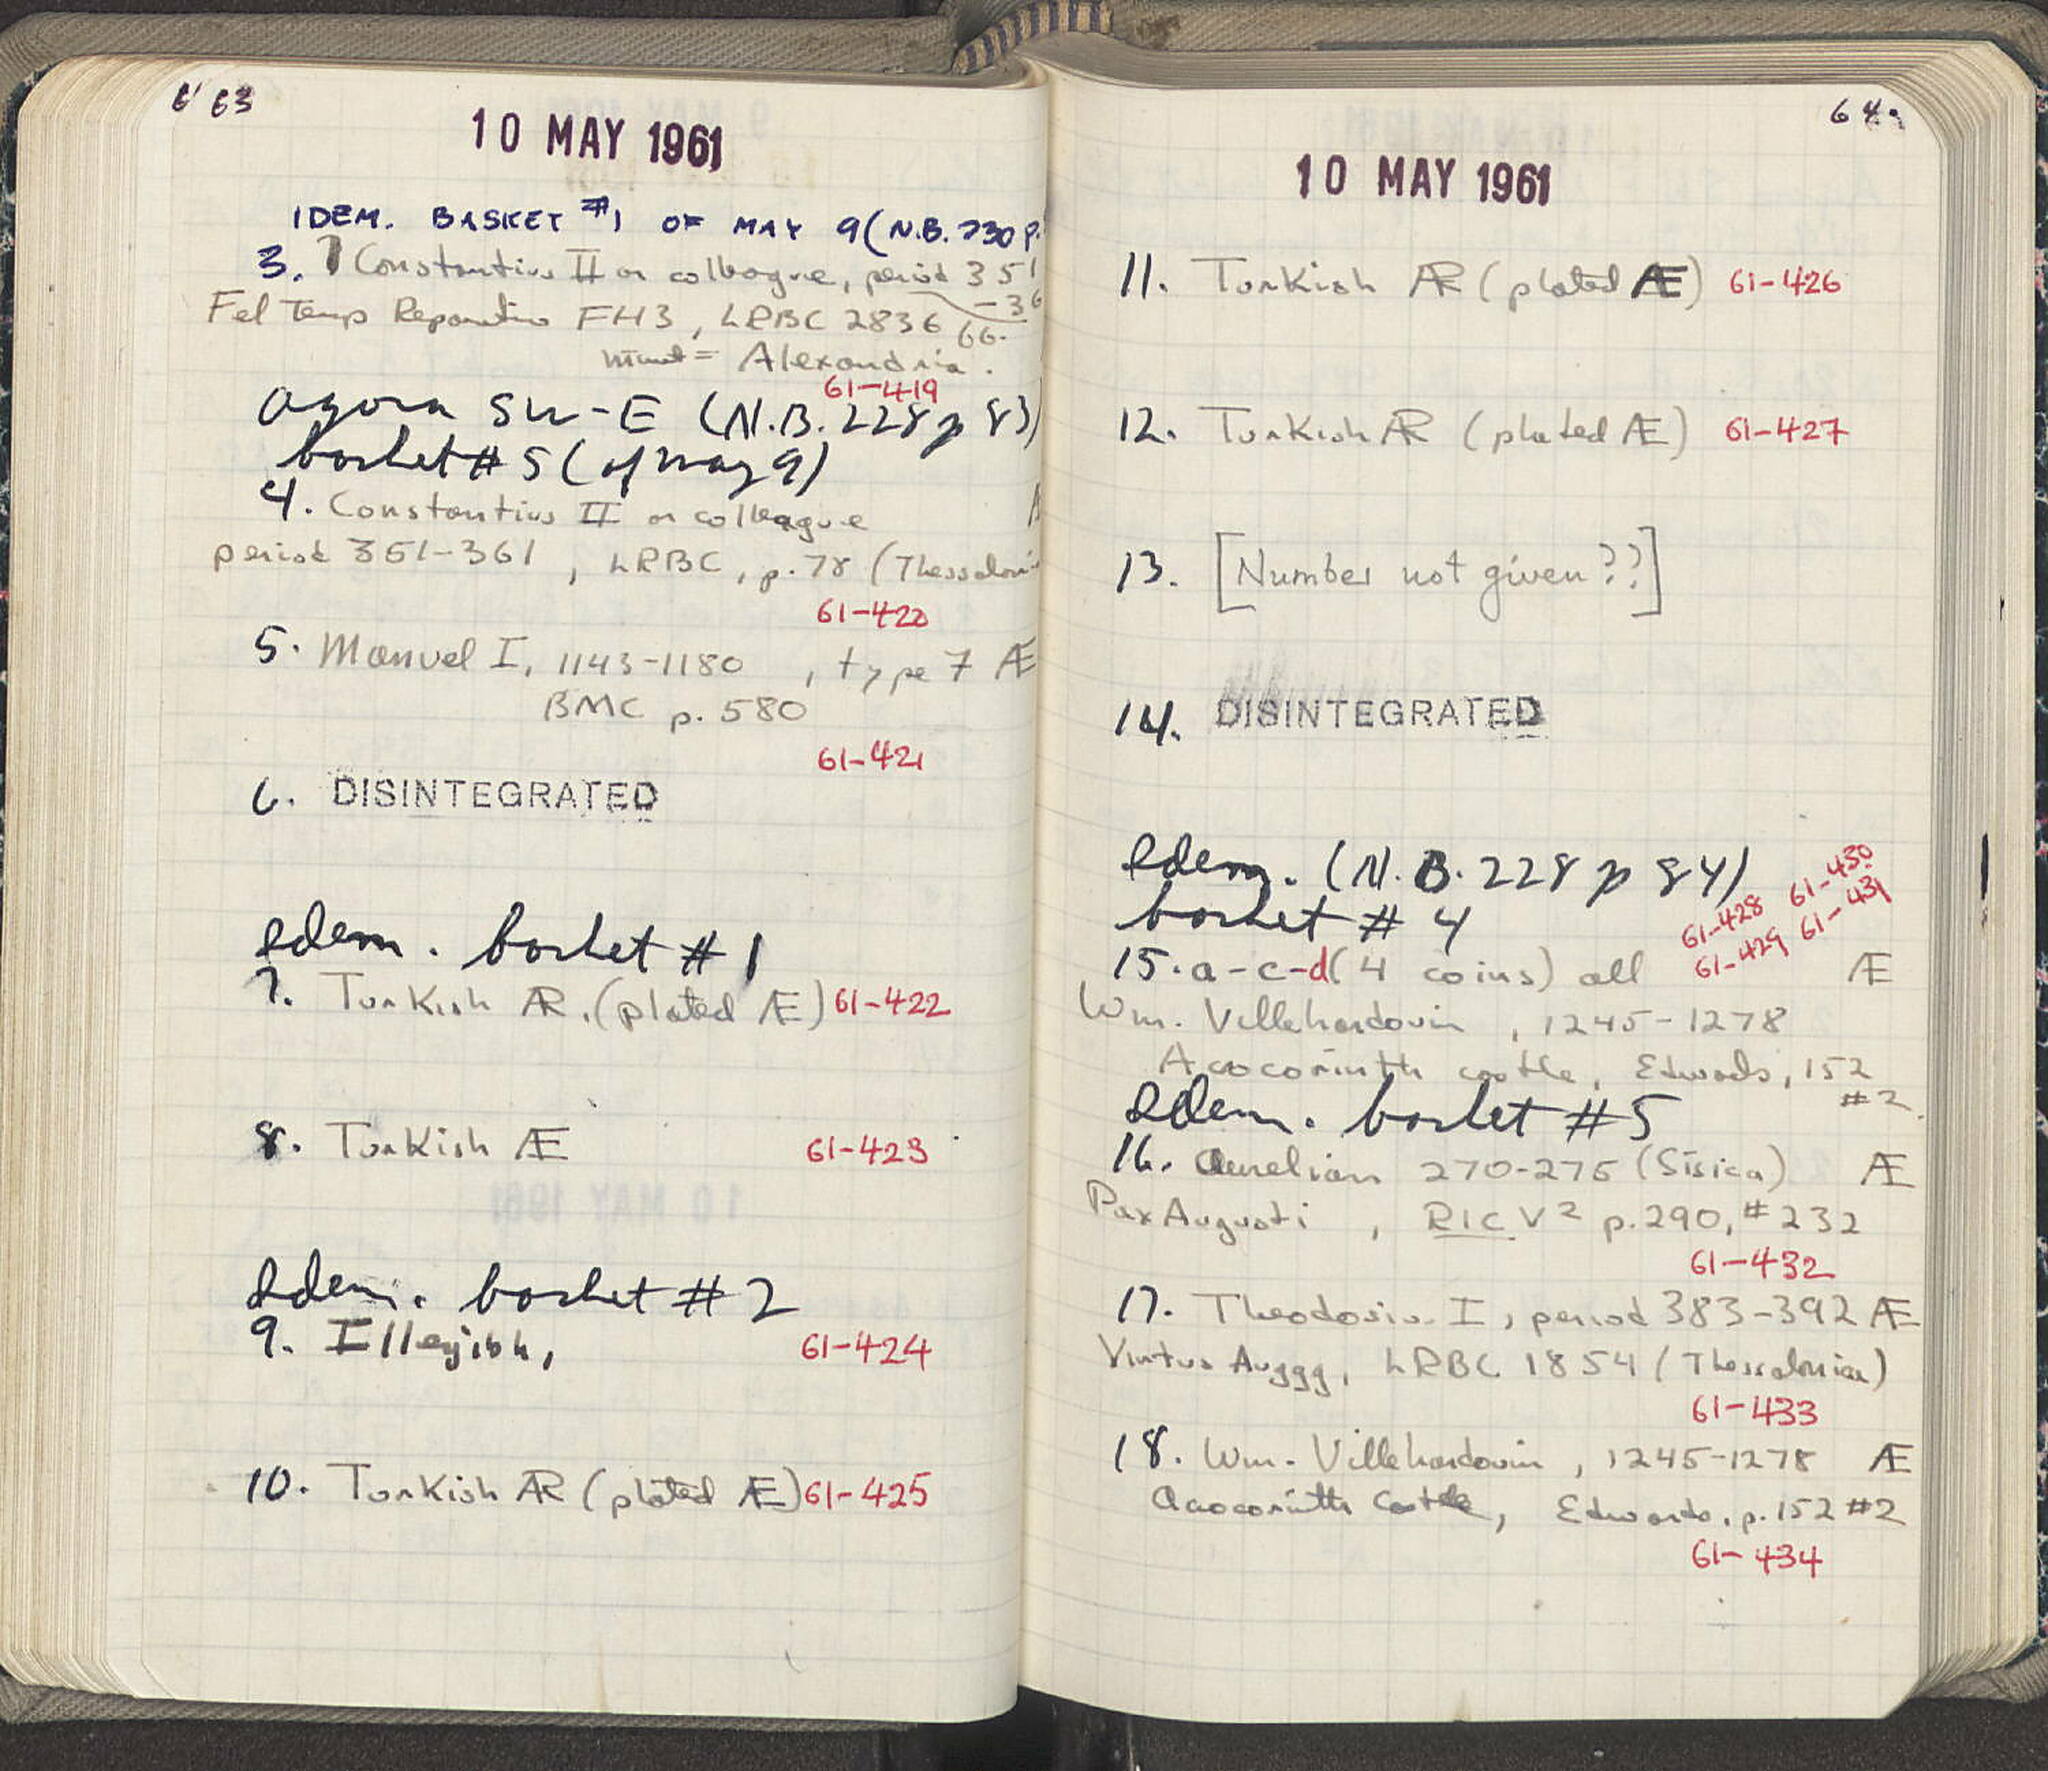 63
10 MAY 1961
IDEM. BASKET #1 OF MAY 9 (N.B. 230 P.
3. Constantius II or colleague, period 351
-36
Fel Temp Reparatio FH3, LRBC 2836
66.
mint = Alexandria.
61-419
Agora SW-E (N.B. 228 p 83)
basket #5 (of May 9)
4. Constantius II or colleague
period 351-361, LRBC, p. 78 (Thessaloni
61-420
5. Manuel I, 1143-1180, type 7 Æ
BMC p. 580
61-421
6. DISINTEGRATED
Idem. basket #1
7. Turkish AR. (plated Æ) 61-422
8. Turkish Æ 61-423
Idem. basket #2
9. Illegible, 61-424
10. Turkish AR (plated Æ) 61-425
64.
10 MAY 1961
11. Turkish AR (plated Æ) 61-426
12. Turkish AR (plated Æ) 61-427
13. [Number not given??]
14. DISINTEGRATED
Idem. (N.B. 228 p 84)
basket #4
61-428 61-430
61-429 61-431
15. a-c-d (4 coins) all Æ
Wm. Villehardouin, 1245-1278
Acrocorinth castle, Edwards, 152
#2.
Idem. basket #5
16. Aurelian 270-275 (Sisica) Æ
Pax Augusti, RIC V² p. 290, #232
61-432
17. Theodosius I, period 383-392 Æ
Virtus Auggg, LRBC 1854 (Thessalonica)
61-433
18. Wm. Villehardouin, 1245-1278 Æ
Acrocorinth Castle, Edwards, p. 152 #2
61-434